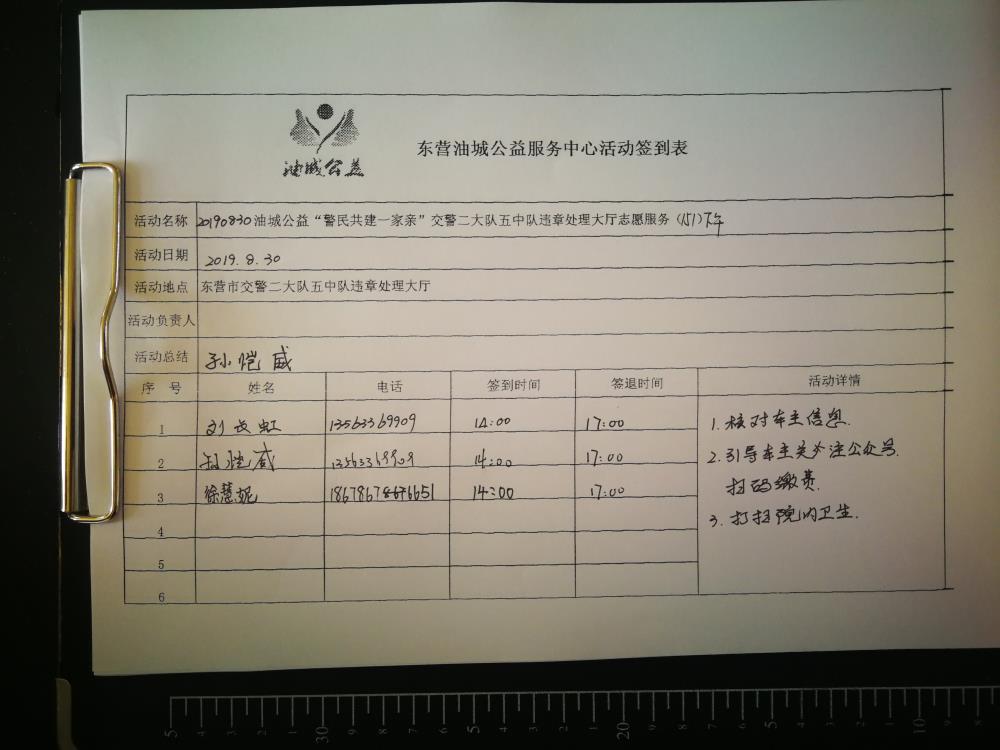 油城公益
东营油城公益服务中心活动签到表
活动名称 20190830油城公益“警民共建一家亲”交警二大队五中队违章处理大厅志愿服务(151)下午
活动日期 2019.8.30
活动地点 东营市交警二大队五中队违章处理大厅
活动负责人
活动总结 孙恺威
序 号 姓名 电话 签到时间 签退时间 活动详情
1 刘长虹 13563369909 14:00 17:00 1.核对车主信息.
2 孙恺威 13563369909 14:00 17:00 2.引导车主关注公众号.
扫码缴费.
3 徐慧妮 14:00 17:00
3.打扫院内卫生.
4
5
6
5 4 3 2 1 30 9 8 7 6 5 4 3 2 1 20 9 8 7 6 5 4 3 2 1 10 9 8